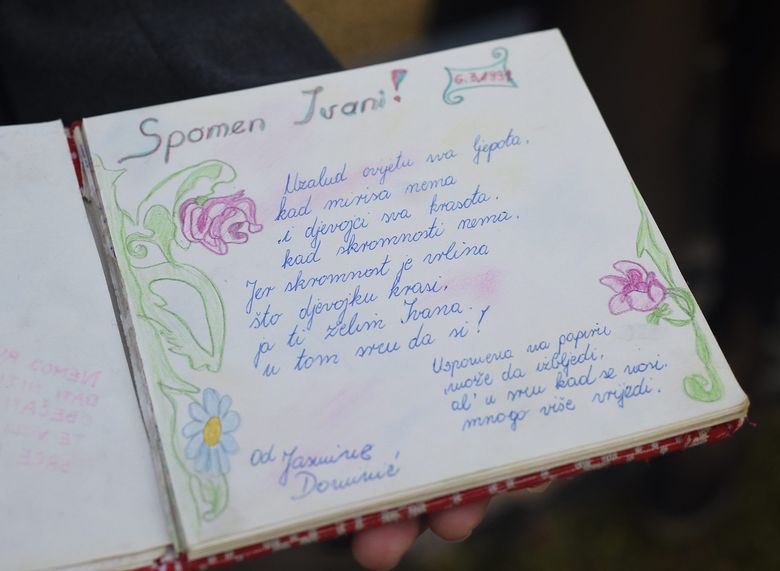 Spomen Ivani!
6.3.1991
Uzalud cvijetu sva ljepota,
kad mirisa nema
i djevojci sva krasota,
kad skromnosti nema.
Jer skromnost je vrlina
što djevojku krasi,
ja ti želim Ivana
u tom srcu da si!
Uspomena na papiru
može da izbljedi,
al' u srcu kad se nosi,
mnogo više vrijedi.
Od Jasmine